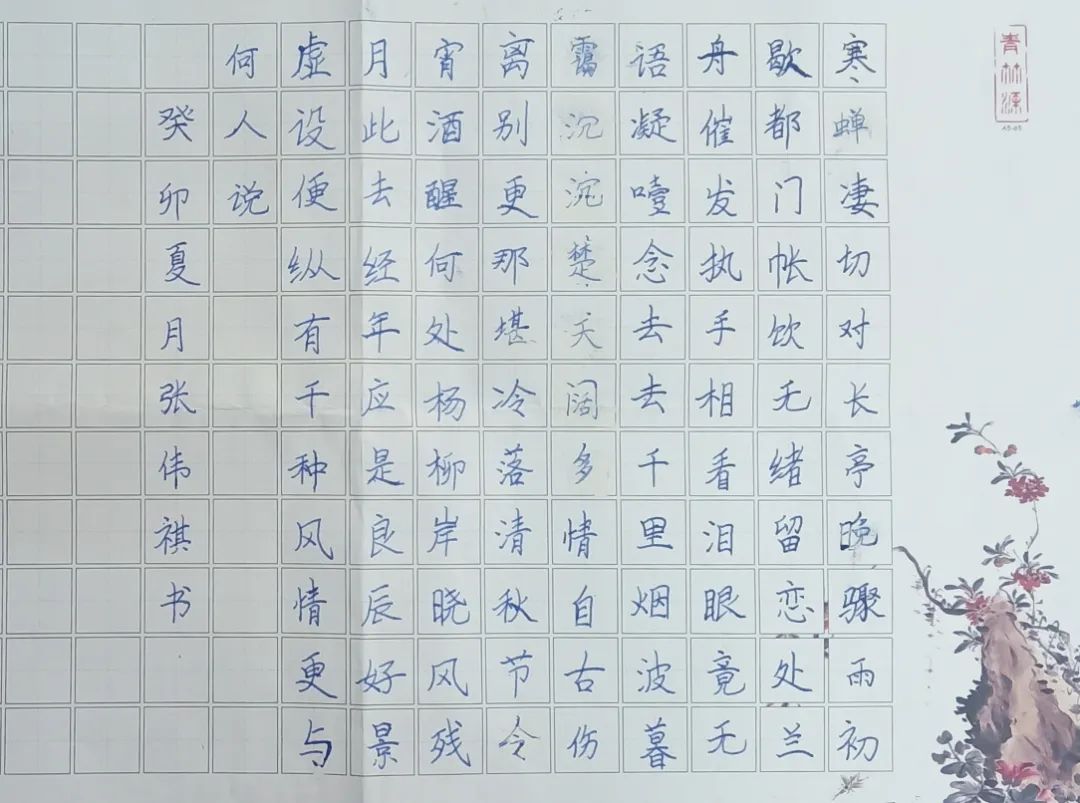 青林源
寒蝉凄切对长亭晚骤雨初
歇都门帐饮无绪留恋处兰
舟催发执手相看泪眼竟无
语凝噎念去去千里烟波暮
霭沉沉楚天阔多情自古伤
离别更那堪冷落清秋节今
宵酒醒何处杨柳岸晓风残
月此去经年应是良辰好景
虚设便纵有千种风情更与
何人说
癸卯夏月张伟祺书